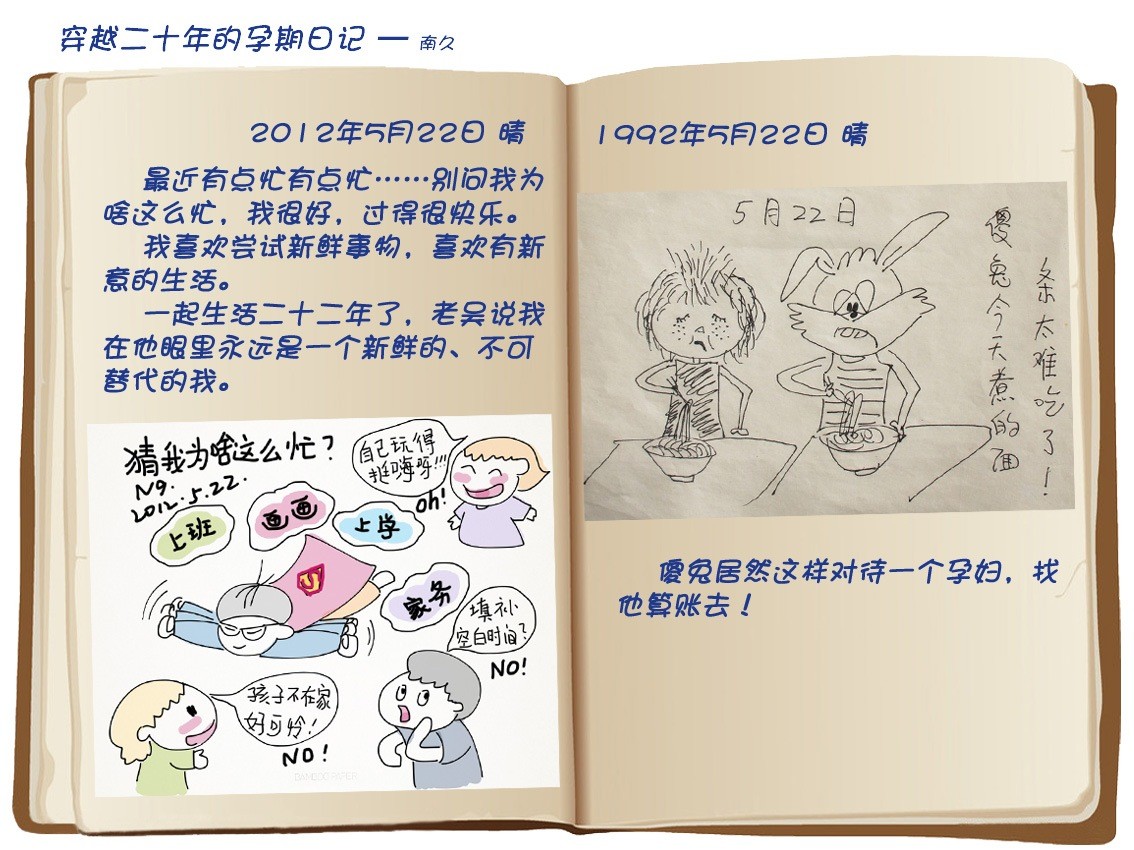 穿越二十年的孕期日记 — 南久
2012年5月22日 晴
最近有点忙有点忙……别问我为
啥这么忙，我很好，过得很快乐。
我喜欢尝试新鲜事物，喜欢有新
意的生活。
一起生活二十二年了，老吴说我
在他眼里永远是一个新鲜的、不可
替代的我。
猜我为啥这么忙？
N9.
2012.5.22.
自己玩得
挺嗨呀!!!
oh!
上班
画画
上学
家务
填补
空白时间？
NO!
孩子不在家
好可怜！
NO!
BAMBOO PAPER
1992年5月22日 晴
5月22日
傻兔今天煮的面
条太难吃了！
傻兔居然这样对待一个孕妇，找
他算账去！